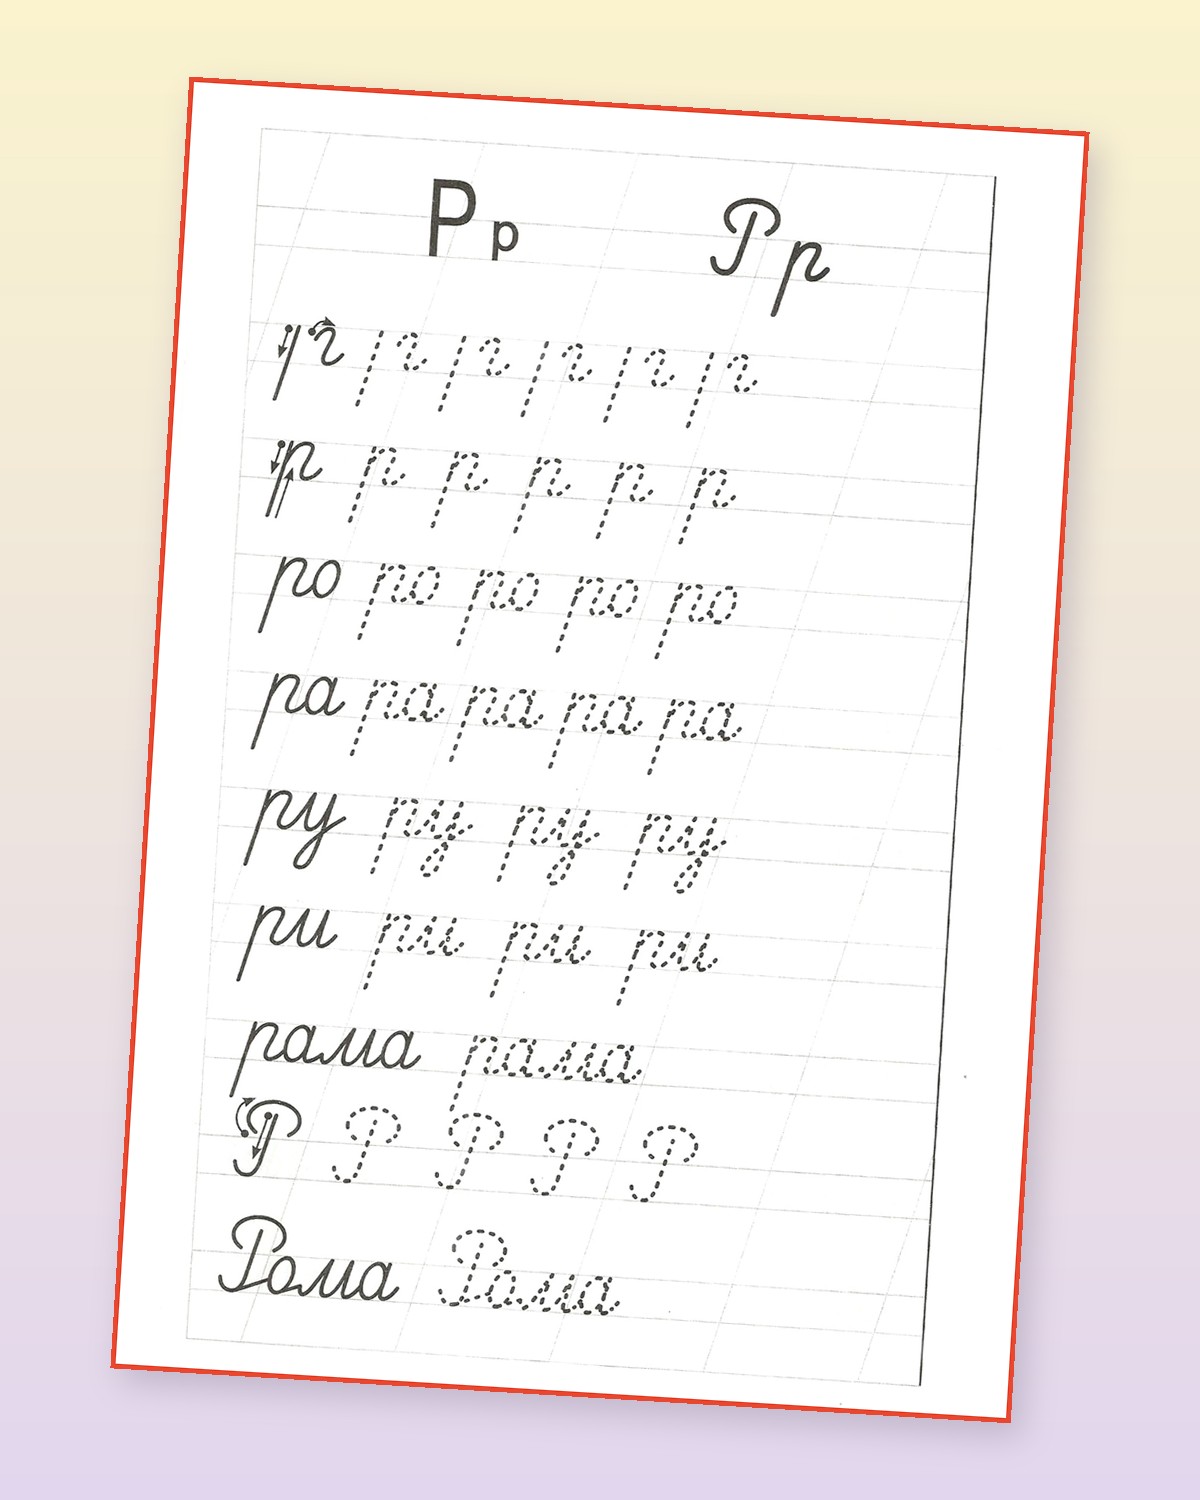 Р р Р р
р р р р р р
ро ро ро ро ро
ра ра ра ра ра
ру ру ру ру
ри ри ри ри
рама рама
Р Р Р Р Р
Рома Рома